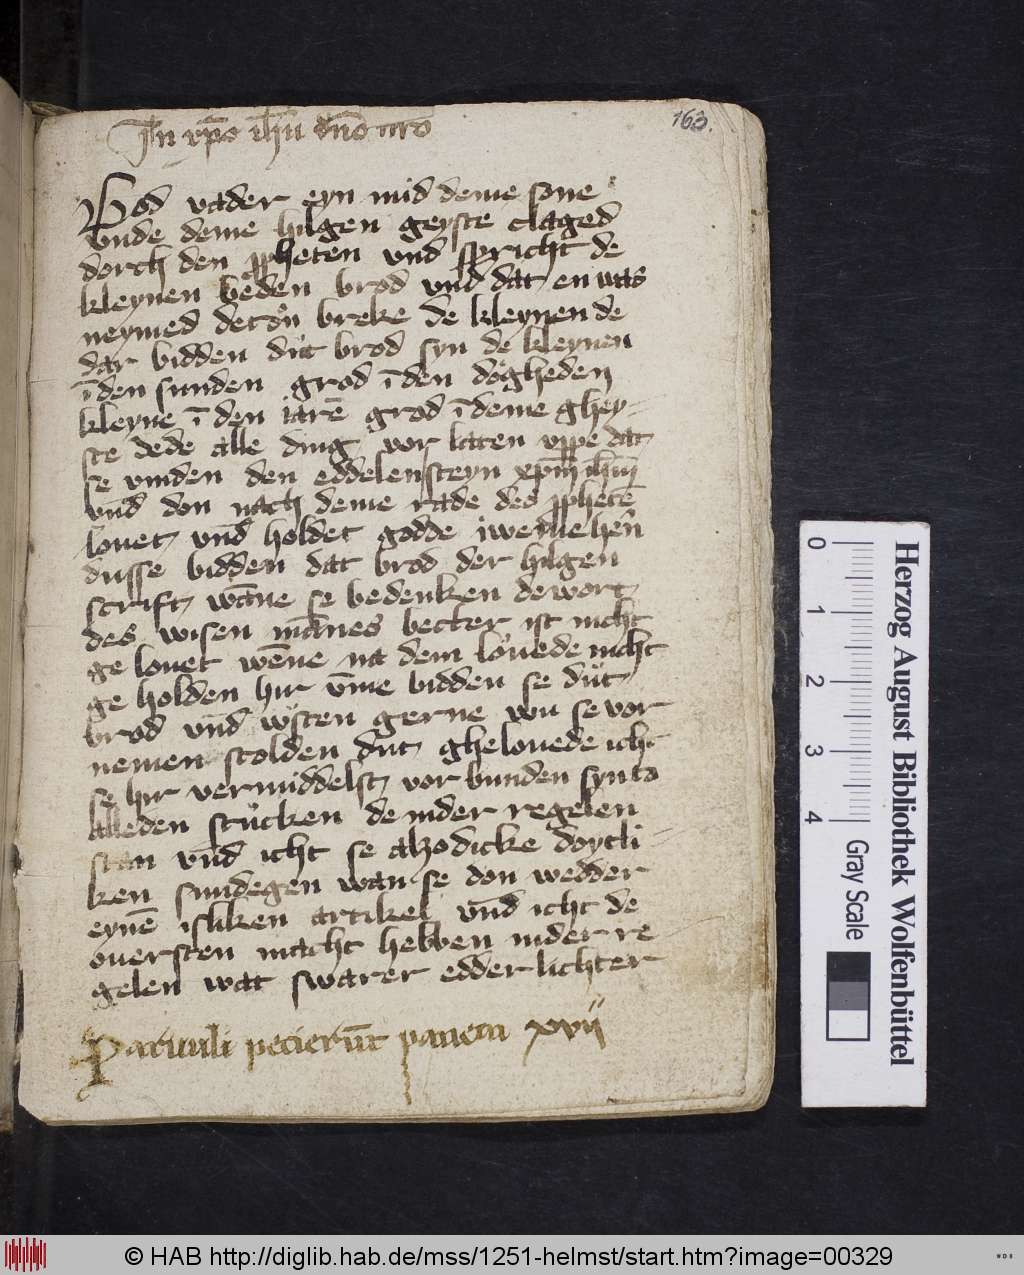 163.
In xp̄o ih̄u dn̄o nr̄o
God vader eyn mid deme sone
vnde deme hilgen geyste claged
dorch den ppheten vnd spricht de
kleynen beden brod vnd dat en was
neymed det on breke de kleynen de
dar bidden dut brod syn de kleynen
ī den sunden grod ī den dogheden
kleyne ī den iarē grod ī deme ghey-
ste dede alle ding vor laten vppe dat
se vinden den eddelen steyn xpm̄ ih̄m
vnd don nach deme rade des pphetē
louet vnd holdet godde iweme hern̄
dusse bidden dat brod der hilgen
scrift wāne se bedenken de wort
des wisen mānes becter ist nicht
ge louet wēne na dem louede nicht
ge holden hir v̄me bidden se dut
brod vnd wisten gerne wu se vor
nemen scolden dut ghelouede icht
se hir vermiddelst vor bunden syn to
alleden stucken de in der regelen
stan vnd icht se alzo dicke doytli-
ken sundegen wan se don wedder
eynē isliken artikel vnd icht de
ouersten macht hebben in der re
gelen wat swarer edder lichter
Paruuli pecierūt panem xvij
0 1 2 3 4
Herzog August Bibliothek Wolfenbüttel
Gray Scale
© HAB http://diglib.hab.de/mss/1251-helmst/start.htm?image=00329